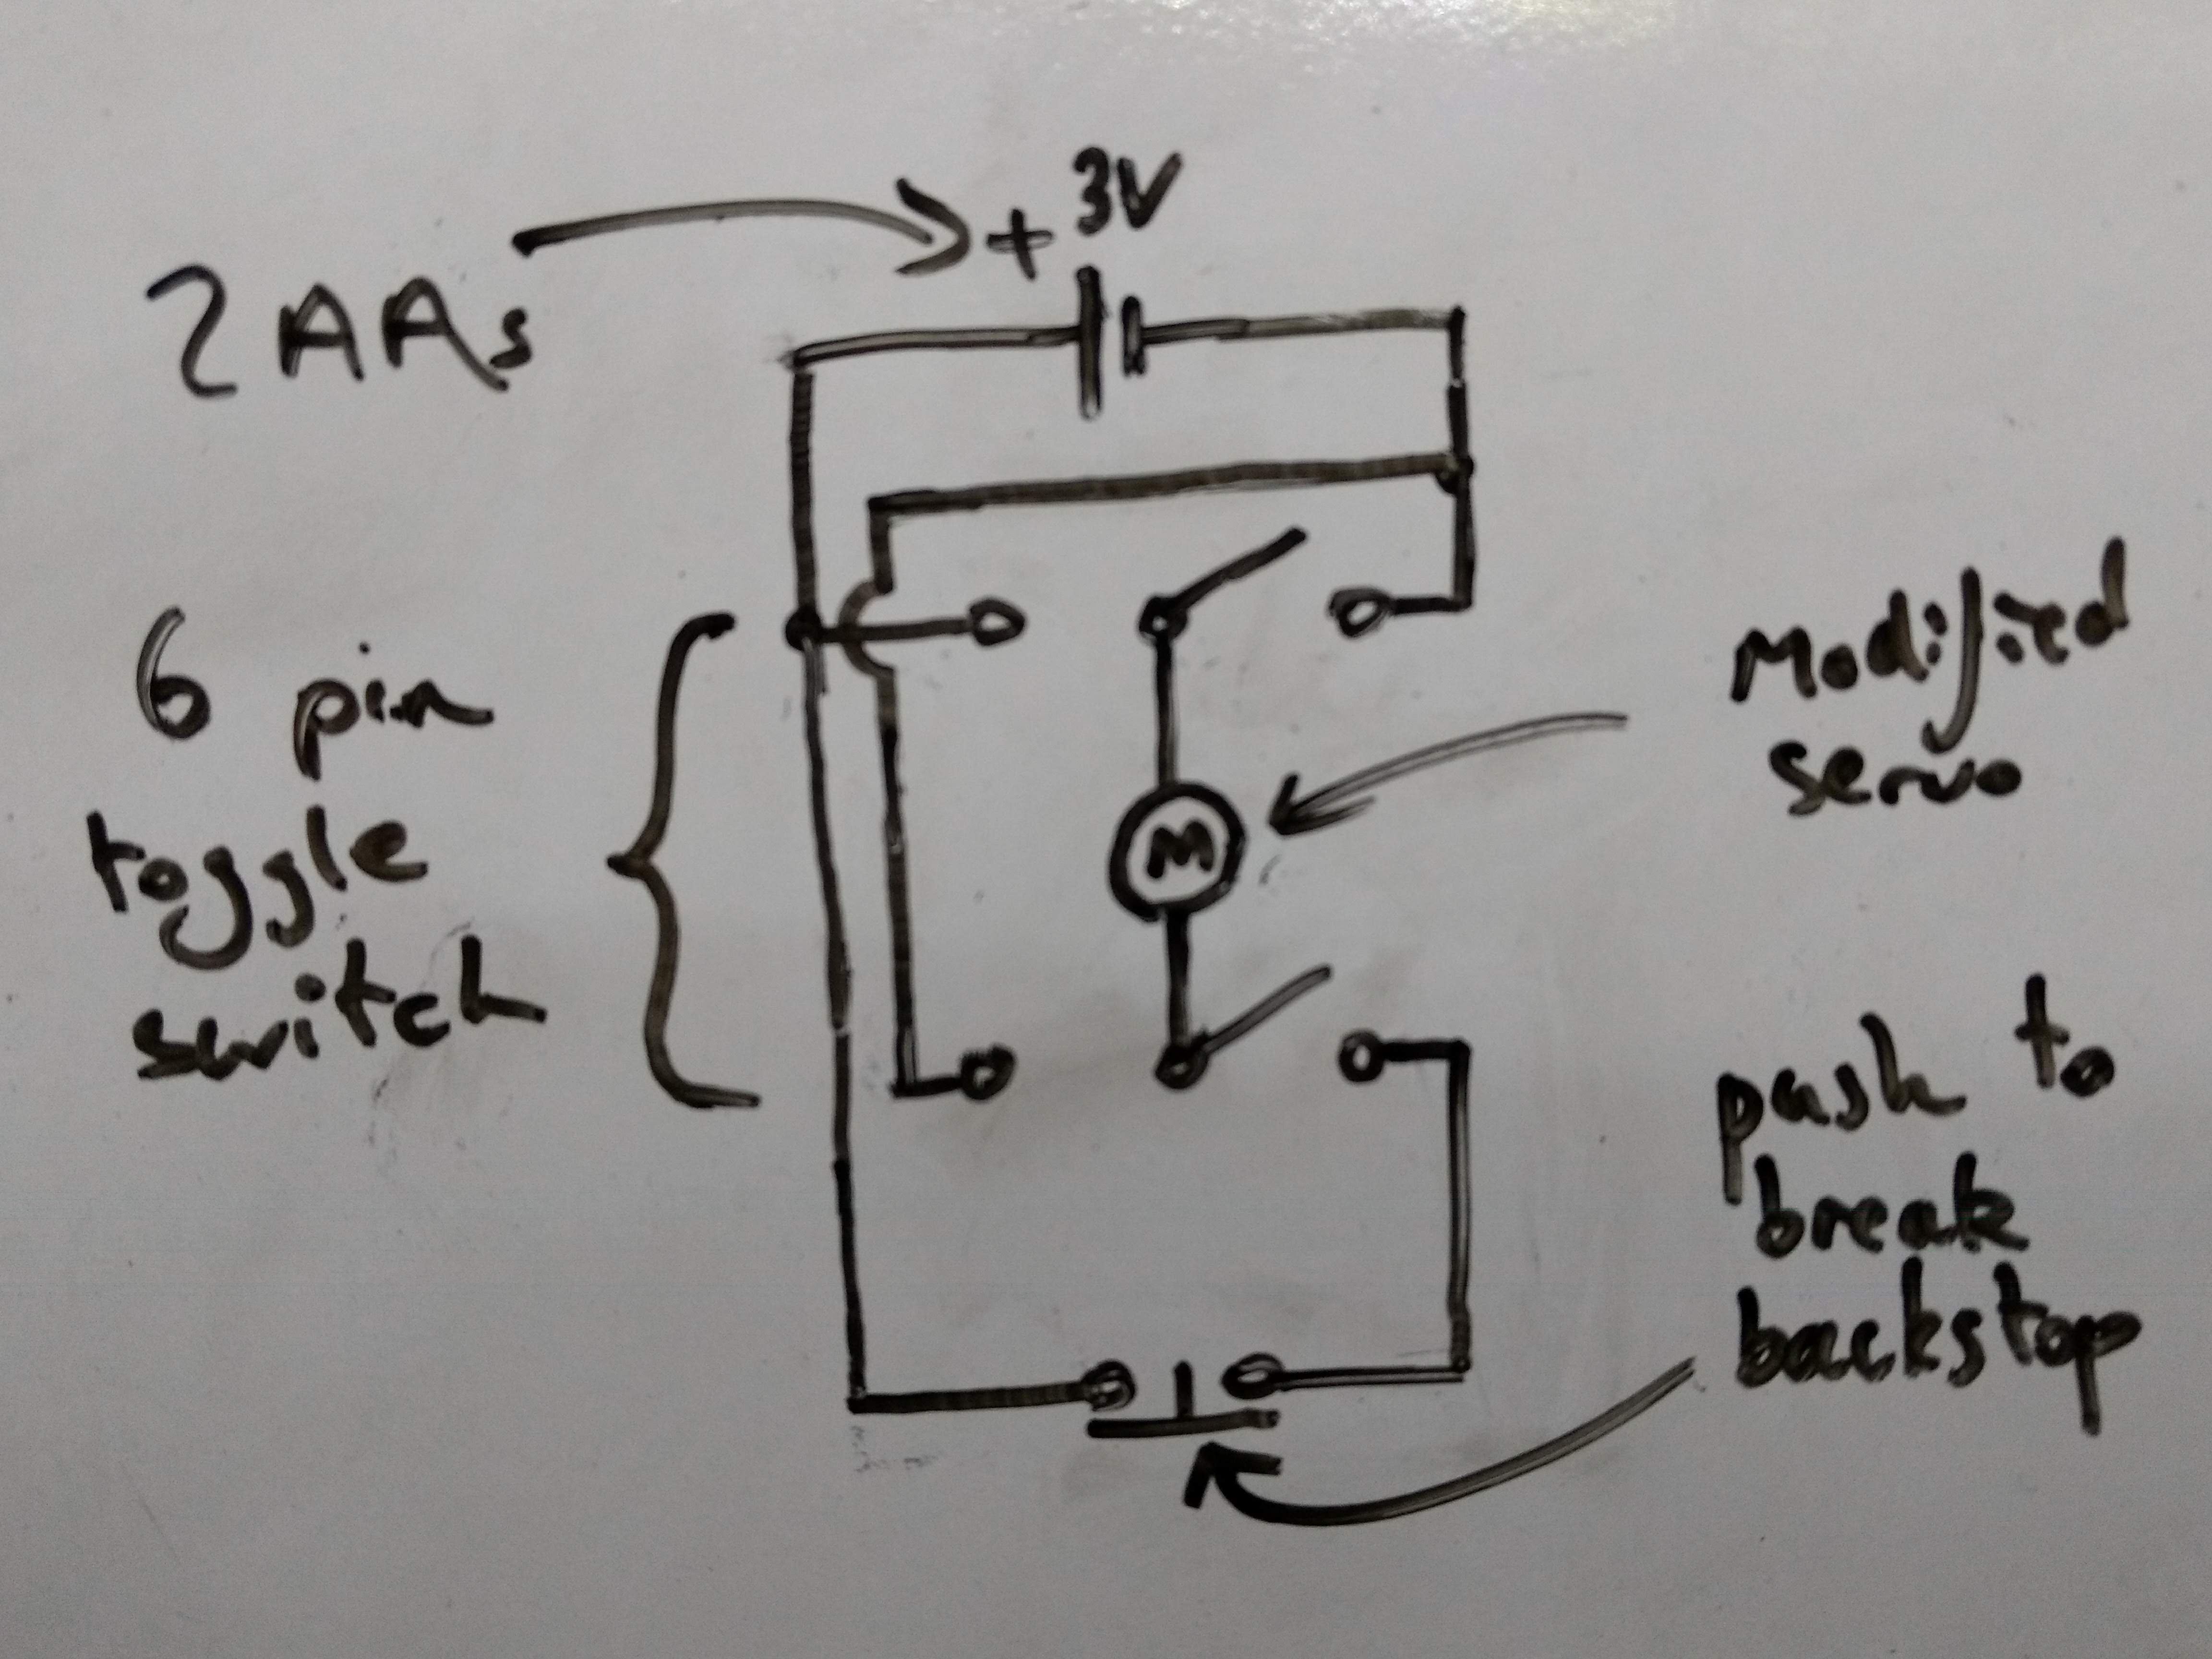 + 3V
2 AAs
6 pin
toggle
switch
Modified
servo
M
push to
break
backstop